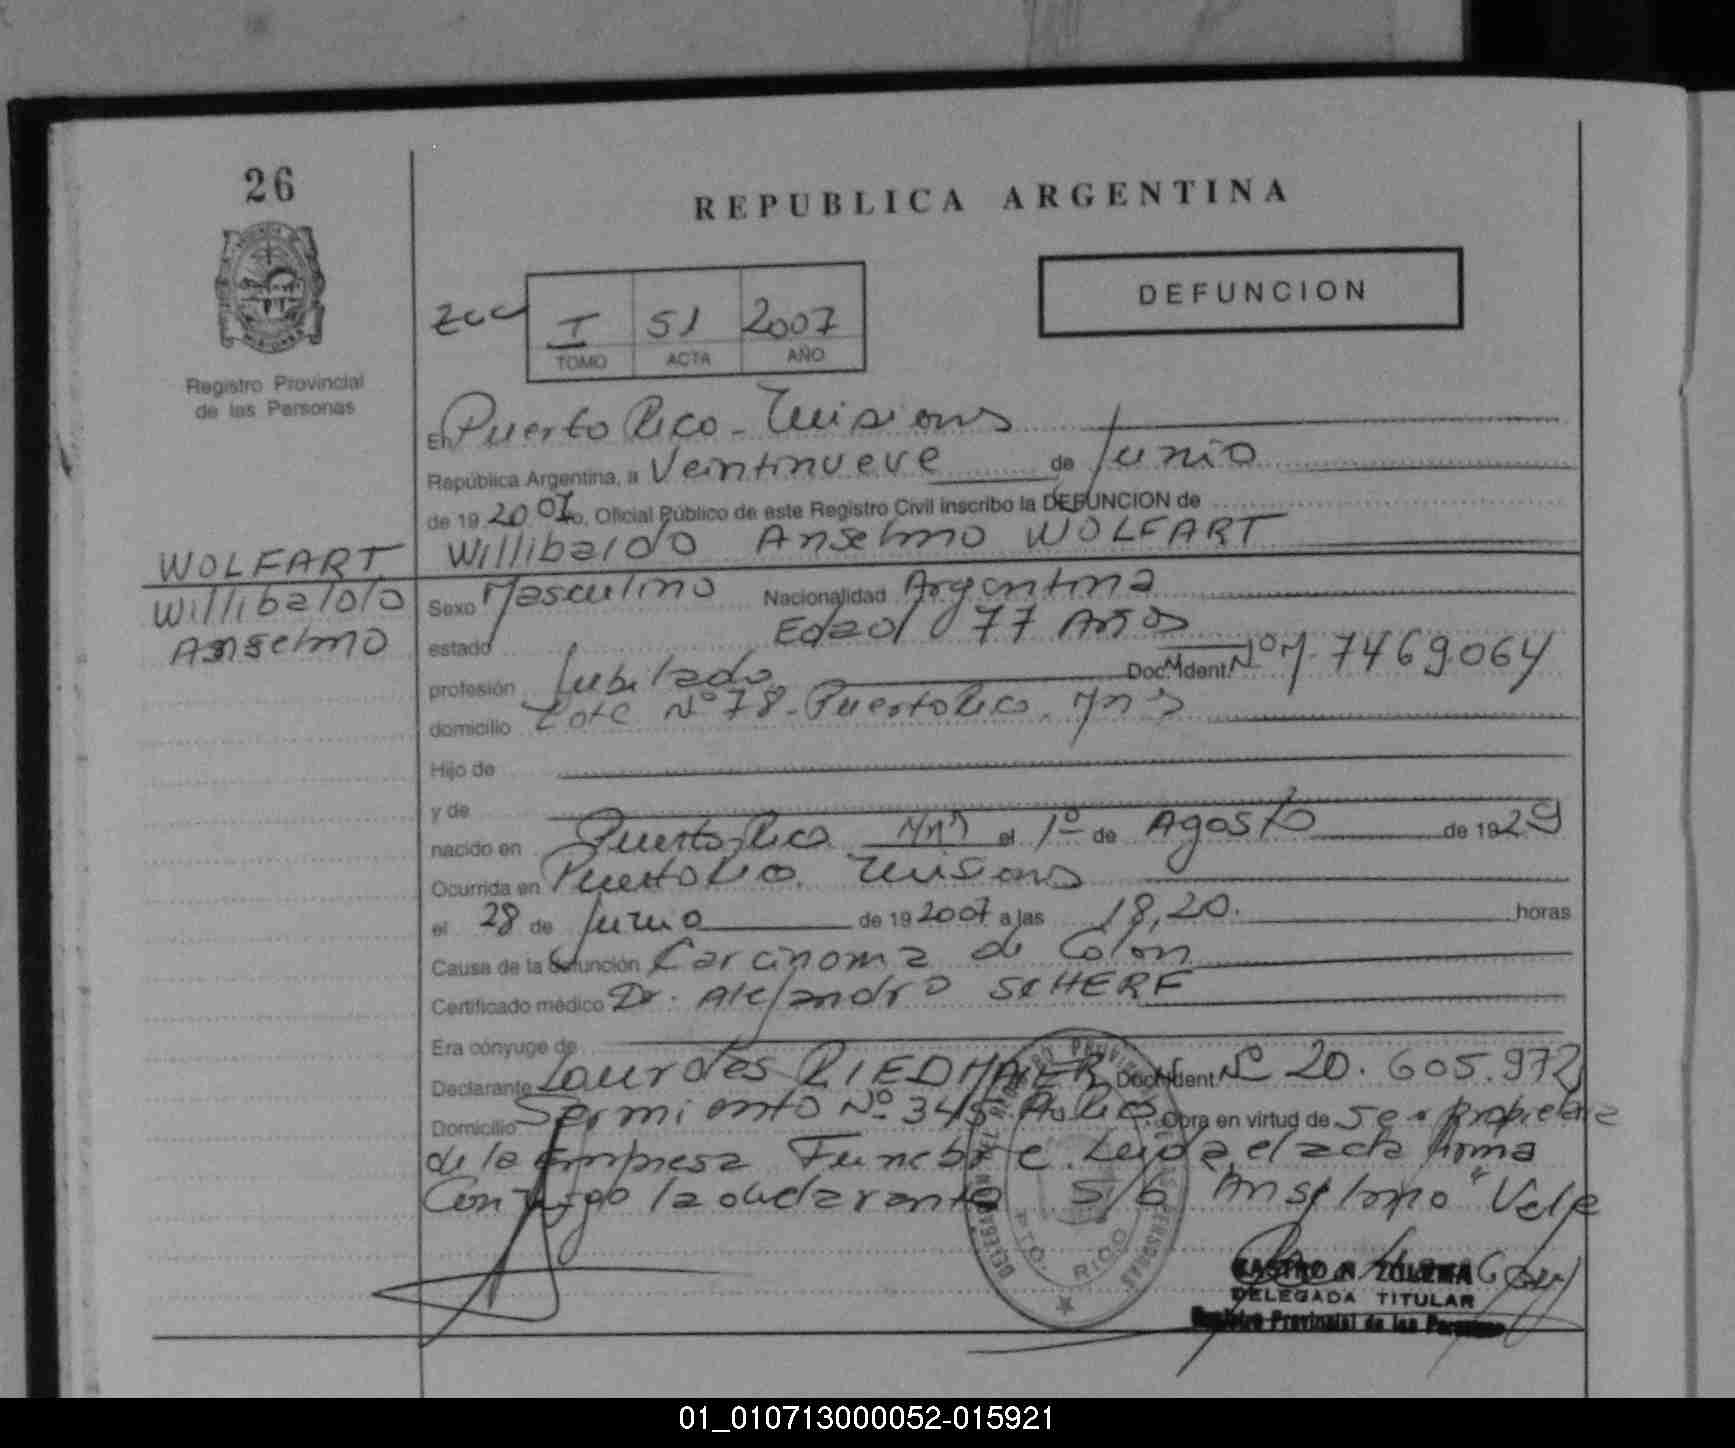 26
REPUBLICA ARGENTINA
DEFUNCION
I 51 2007
TOMO ACTA AÑO
Registro Provincial
de las Personas
En Puerto Rico - Misiones
República Argentina, a Veintinueve de Junio
de 19 2007 yo, Oficial Público de este Registro Civil inscribo la DEFUNCION de
Willibaldo Anselmo WOLFART
WOLFART
Willibaldo
Anselmo
Sexo Masculino Nacionalidad Argentina
estado Edad 77 Años
profesión Jubilado Doc. Ident. Nº M. 7469.064
domicilio Lote Nº 78 - Puerto Rico, Mns
Hijo de
y de
nacido en Puerto Rico Mns el 1º de Agosto de 1929
Ocurrida en Puerto Rico Misiones
el 28 de Junio de 19 2007 a las 18,20. horas
Causa de la defunción Carcinoma de Colon
Certificado médico Dr. Alejandro SCHERF
Era cónyuge de
Declarante Lourdes RIEDMAIER Doc. Ident. Nº 20.605.972
Domicilio Sarmiento Nº 345 Obra en virtud de Ser Propietaria
de la Empresa Funebre. Leida el acta firma
Conmigo la declarante S/b "Anselmo" Vale
REGISTRO PROVINCIAL DE LAS PERSONAS
DELEGACION
PTO. RICO
CASTRO R. ZULEMA
DELEGADA TITULAR
Registro Provincial de las Personas
01_010713000052-015921